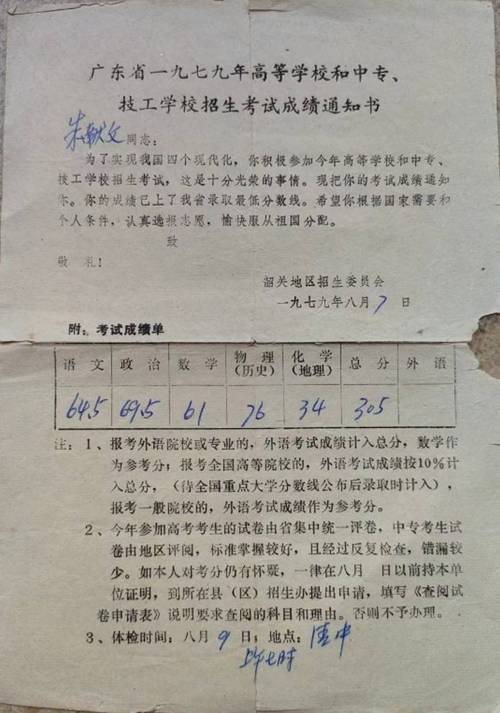 广东省一九七九年高等学校和中专、
技工学校招生考试成绩通知书
朱献文同志：
为了实现我国四个现代化，你积极参加今年高等学校和中专、
技工学校招生考试，这是十分光荣的事情。现把你的考试成绩通知
你。你的成绩已上了我省录取最低分数线。希望你根据国家需要和
个人条件，认真选报志愿，愉快服从祖国分配。
致
敬礼！
韶关地区招生委员会
一九七九年八月7日
附：考试成绩单
语文 政治 数学 物理（历史） 化学（地理） 总分 外语
64.5 69.5 61 76 34 305
注：1、报考外语院校或专业的，外语考试成绩计入总分，数学作
为参考分；报考全国高等院校的，外语成绩按10%计
入总分，（待全国重点大学分数线公布后录取时计入），
报考一般院校的，外语考试成绩作为参考分。
2、今年参加高考考生的试卷由省集中统一评卷，中专考生试
卷由地区评阅，标准掌握较好，且经过反复检查，错漏较
少。如本人对考分仍有怀疑，一律在八月 日以前持本单
位证明，到所在县（区）招生办提出申请，填写《查阅试
卷申请表》说明要求查阅的科目和理由。否则不予办理。
3、体检时间：八月9日；地点：中
上午七时